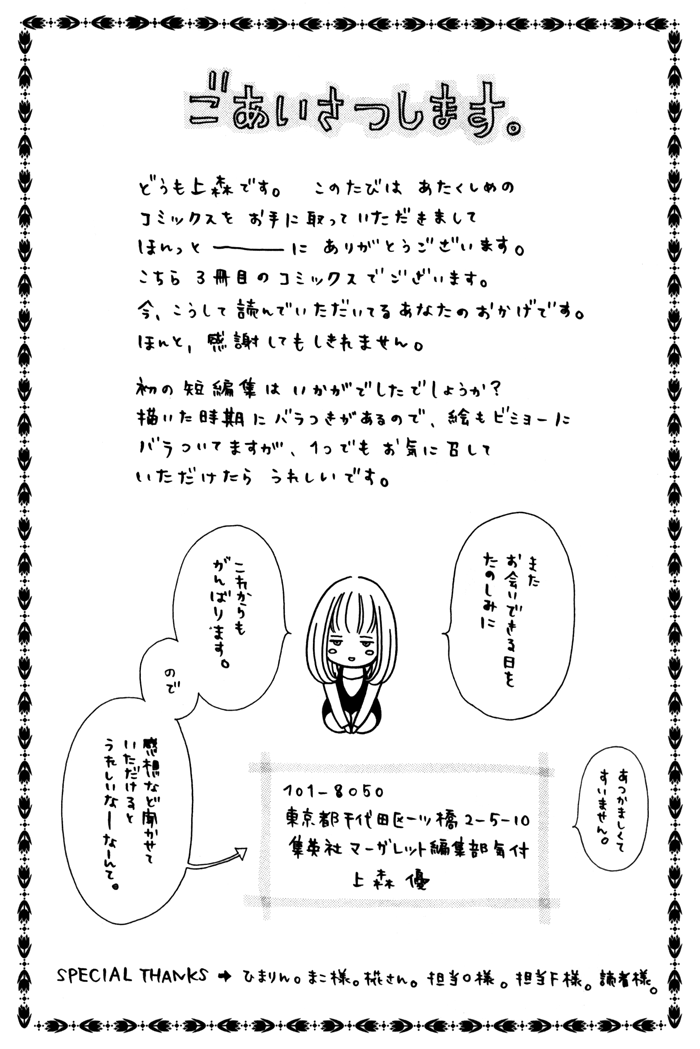 ごあいさつします。
どうも上森です。 このたびは あたくしめの
コミックスを お手に取っていただきまして
ほんっと ――― に ありがとうございます。
こちら 3冊目のコミックスでございます。
今、こうして読んでいただいてるあなたのおかげです。
ほんと、感謝してもしきれません。
初の短編集は いかがでしたでしょうか?
描いた時期にバラつきがあるので、絵もビミョーに
バラついてますが、1つでも お気に召して
いただけたら うれしいです。
また
お会いできる日を
たのしみに
これからも
がんばります。
ので
感想など聞かせて
いただけると
うれしいなーなーんて。
あつかましくて
すいません。
101-8050
東京都千代田区一ツ橋2-5-10
集英社 マーガレット編集部気付
上森 優
SPECIAL THANKS ➡ ひまりん。まこ様。椛さん。担当O様。担当F様。読者様。